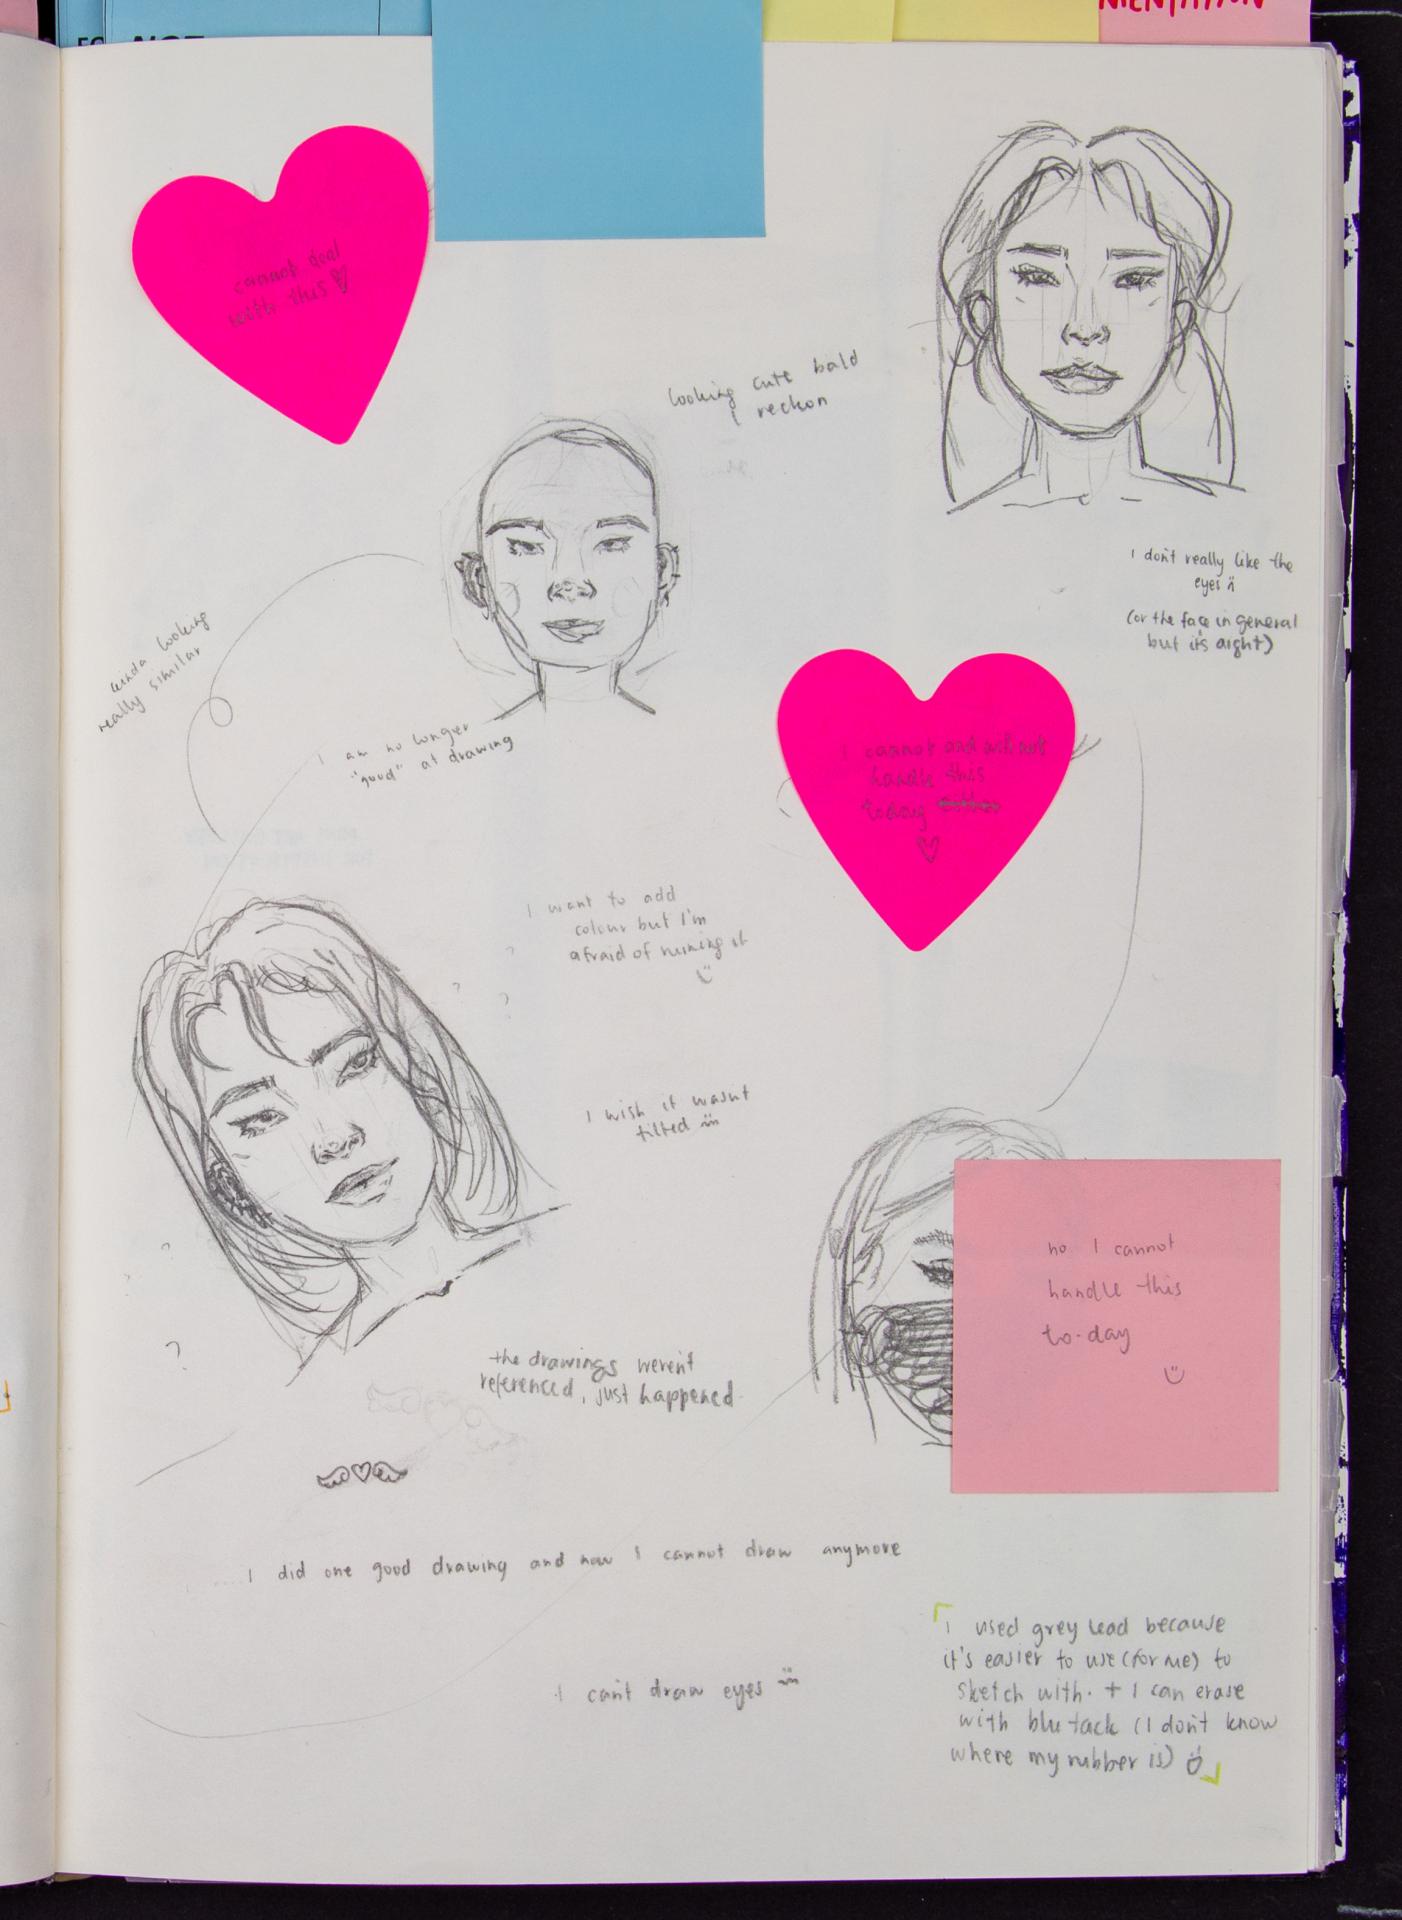 NOT
MENTATION
cannot deal
with this ♡
looking cute bald
I reckon
I don't really like the
eyes
(or the face in general
but it's aight)
kinda looking
really similar
I am no longer
"good" at drawing
I cannot and will not
handle this
today either
♡
I want to add
colour but I'm
afraid of ruining it
I wish it wasn't
tilted
no I cannot
handle this
to-day
the drawings weren't
referenced, just happened.
.....I did one good drawing and now I cannot draw anymore
I can't draw eyes
「I used grey lead because
it's easier to use (for me) to
sketch with. + I can erase
with blu tack (I don't know
where my rubber is)」